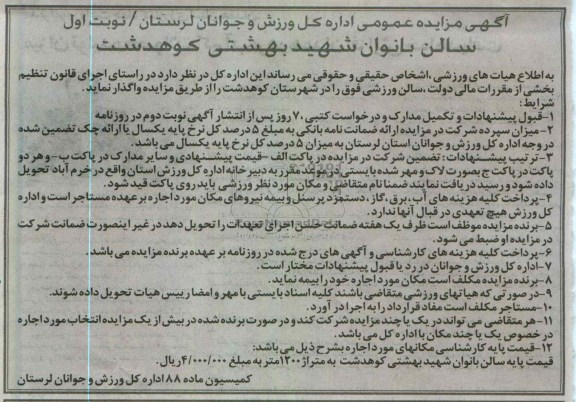 آگهی مزایده عمومی اداره کل ورزش و جوانان لرستان / نوبت اول
سالن بانوان شهید بهشتی کوهدشت
به اطلاع هیات های ورزشی ،اشخاص حقیقی و حقوقی می رساند این اداره کل در نظر دارد در راستای اجرای قانون تنظیم
بخشی از مقررات مالی دولت ،سالن ورزشی فوق را در شهرستان کوهدشت را از طریق مزایده واگذار نماید.
شرایط:
۱-قبول پیشنهادات و تکمیل مدارک و درخواست کتبی ،۷ روز پس از انتشار آگهی نوبت دوم در روزنامه
۲-میزان سپرده شرکت در مزایده ارائه ضمانت نامه بانکی به مبلغ ۵ درصد کل نرخ پایه یکسال یا ارائه چک تضمین شده
در وجه اداره کل ورزش و جوانان استان لرستان به میزان ۵ درصد کل نرخ پایه یکسال می باشد.
۳-ترتیب پیشنهادات: تضمین شرکت در مزایده در پاکت الف -قیمت پیشنهادی و سایر مدارک در پاکت ب- و هر دو
پاکت در پاکت ج بصورت لاک و مهر شده بایستی در موعد مقرر به دبیرخانه اداره کل ورزش استان واقع در خرم آباد تحویل
داده شود و رسید دریافت نمایند ضمنا نام متقاضی و مکان مورد نظر ورزشی باید روی پاکت قید شود.
۴-پرداخت کلیه هزینه های آب،برق،گاز، دستمزد پرسنل و بیمه نیروهای مکان مورد اجاره بر عهده مستاجر است و اداره
کل ورزش هیچ تعهدی در قبال آنها ندارد.
۵-برنده مزایده موظف است ظرف یک هفته ضمانت حسن اجرای تعهدات را تحویل دهد در غیر اینصورت ضمانت شرکت
در مزایده او ضبط می شود.
۶-پرداخت کلیه هزینه های کارشناسی و آگهی های درج شده در روزنامه بر عهده برنده مزایده می باشد.
۷-اداره کل ورزش و جوانان در رد یا قبول پیشنهادات مختار است.
۸-برنده مزایده مکلف است مکان مورد اجاره خود را بیمه نماید.
۹-در صورتی که هیاتهای ورزشی متقاضی باشند کلیه اسناد بایستی با مهر و امضا رییس هیات تحویل داده شوند.
۱۰-مستاجر مکلف است مفاد قرارداد را به اجرا در آورد.
۱۱-هر متقاضی می تواند در یک یا چند مزایده شرکت کند و در صورت برنده شده در بیش از یک مزایده انتخاب مورد اجاره
در خصوص یک یا چند مکان با اداره کل می باشد.
۱۲-قیمت پایه کارشناسی مکانهای مورد اجاره بشرح ذیل می باشد:
قیمت پایه سالن بانوان شهید بهشتی کوهدشت به متراژ ۱۳۰۰متر به مبلغ ۴/۰۰۰/۰۰۰ریال.
کمیسیون ماده ۸۸ اداره کل ورزش و جوانان لرستان